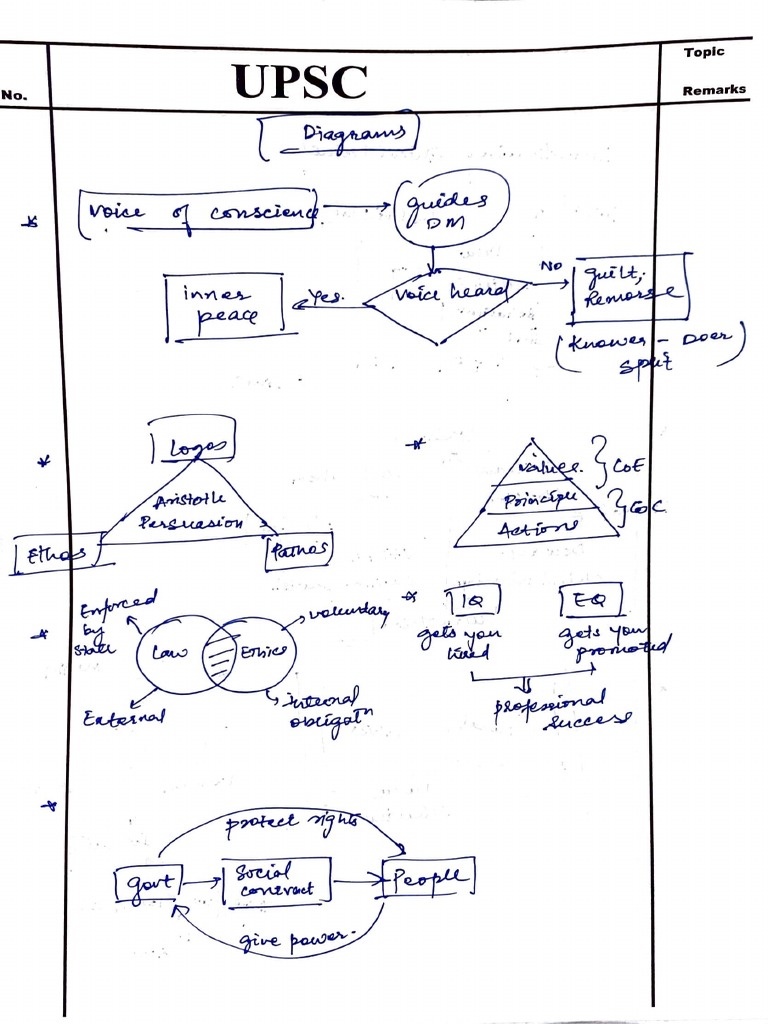 Topic
UPSC
No.
Remarks
Diagrams
Voice of conscience
guides
DM
Voice heard
Yes.
NO
inner
peace
guilt,
Remorse
(Knower - Doer
split)
Logos
Aristotle
Persuasion
Ethos
Pathos
Values
Principle
Actions
CoE
CoC
Enforced
by
state
Law
Ethics
voluntary
External
internal
obligatn
IQ
EQ
gets you
hired
gets you
promoted
professional
success
protect rights
Govt
Social
contract
People
give power.